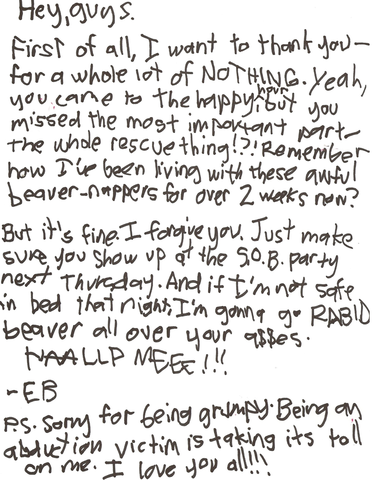 Hey, guys.
First of all, I want to thank you—
for a whole lot of NOTHING. Yeah,
you came to the happy hour, but you
missed the most important part—
the whole rescue thing!?! Remember
how I've been living with these awful
beaver-nappers for over 2 weeks now?
But it's fine. I forgive you. Just make
sure you show up at the S.O.B. party
next Thursday. And if I'm not safe
in bed that night, I'm gonna go RABID
beaver all over your a$$es.
HAALLP MEEE!!!
-EB
P.S. Sorry for being grumpy. Being an
abduction victim is taking its toll
on me. I love you all!!!